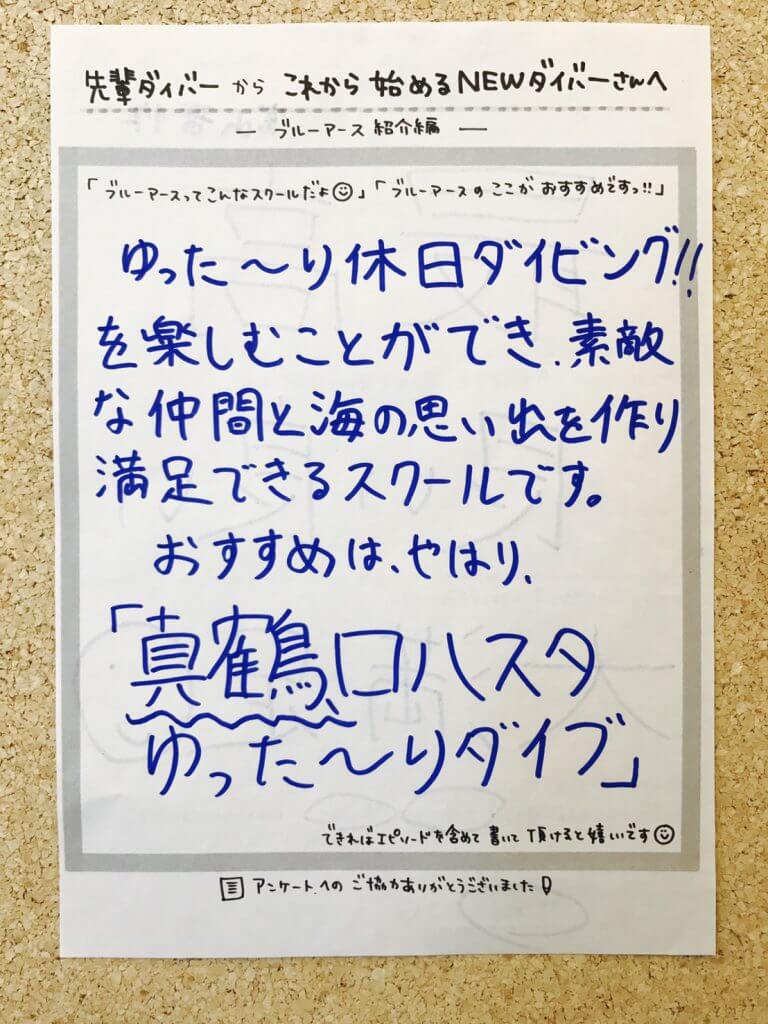 先輩ダイバーから これから 始めるNEWダイバーさんへ
― ブルーアース 紹介編 ―
「ブルーアースってこんなスクールだよ☺」「ブルーアースの ここが おすすめですっ!!」
ゆった〜り休日ダイビング!!
を楽しむことができ、素敵
な仲間と海の思い出を作り
満足できるスクールです。
おすすめは、やはり、
「真鶴ロハスタ
ゆった〜りダイブ」
できればエピソードを含めて 書いて 頂けると嬉しいです☺
アンケートへの ご協力ありがとうございました